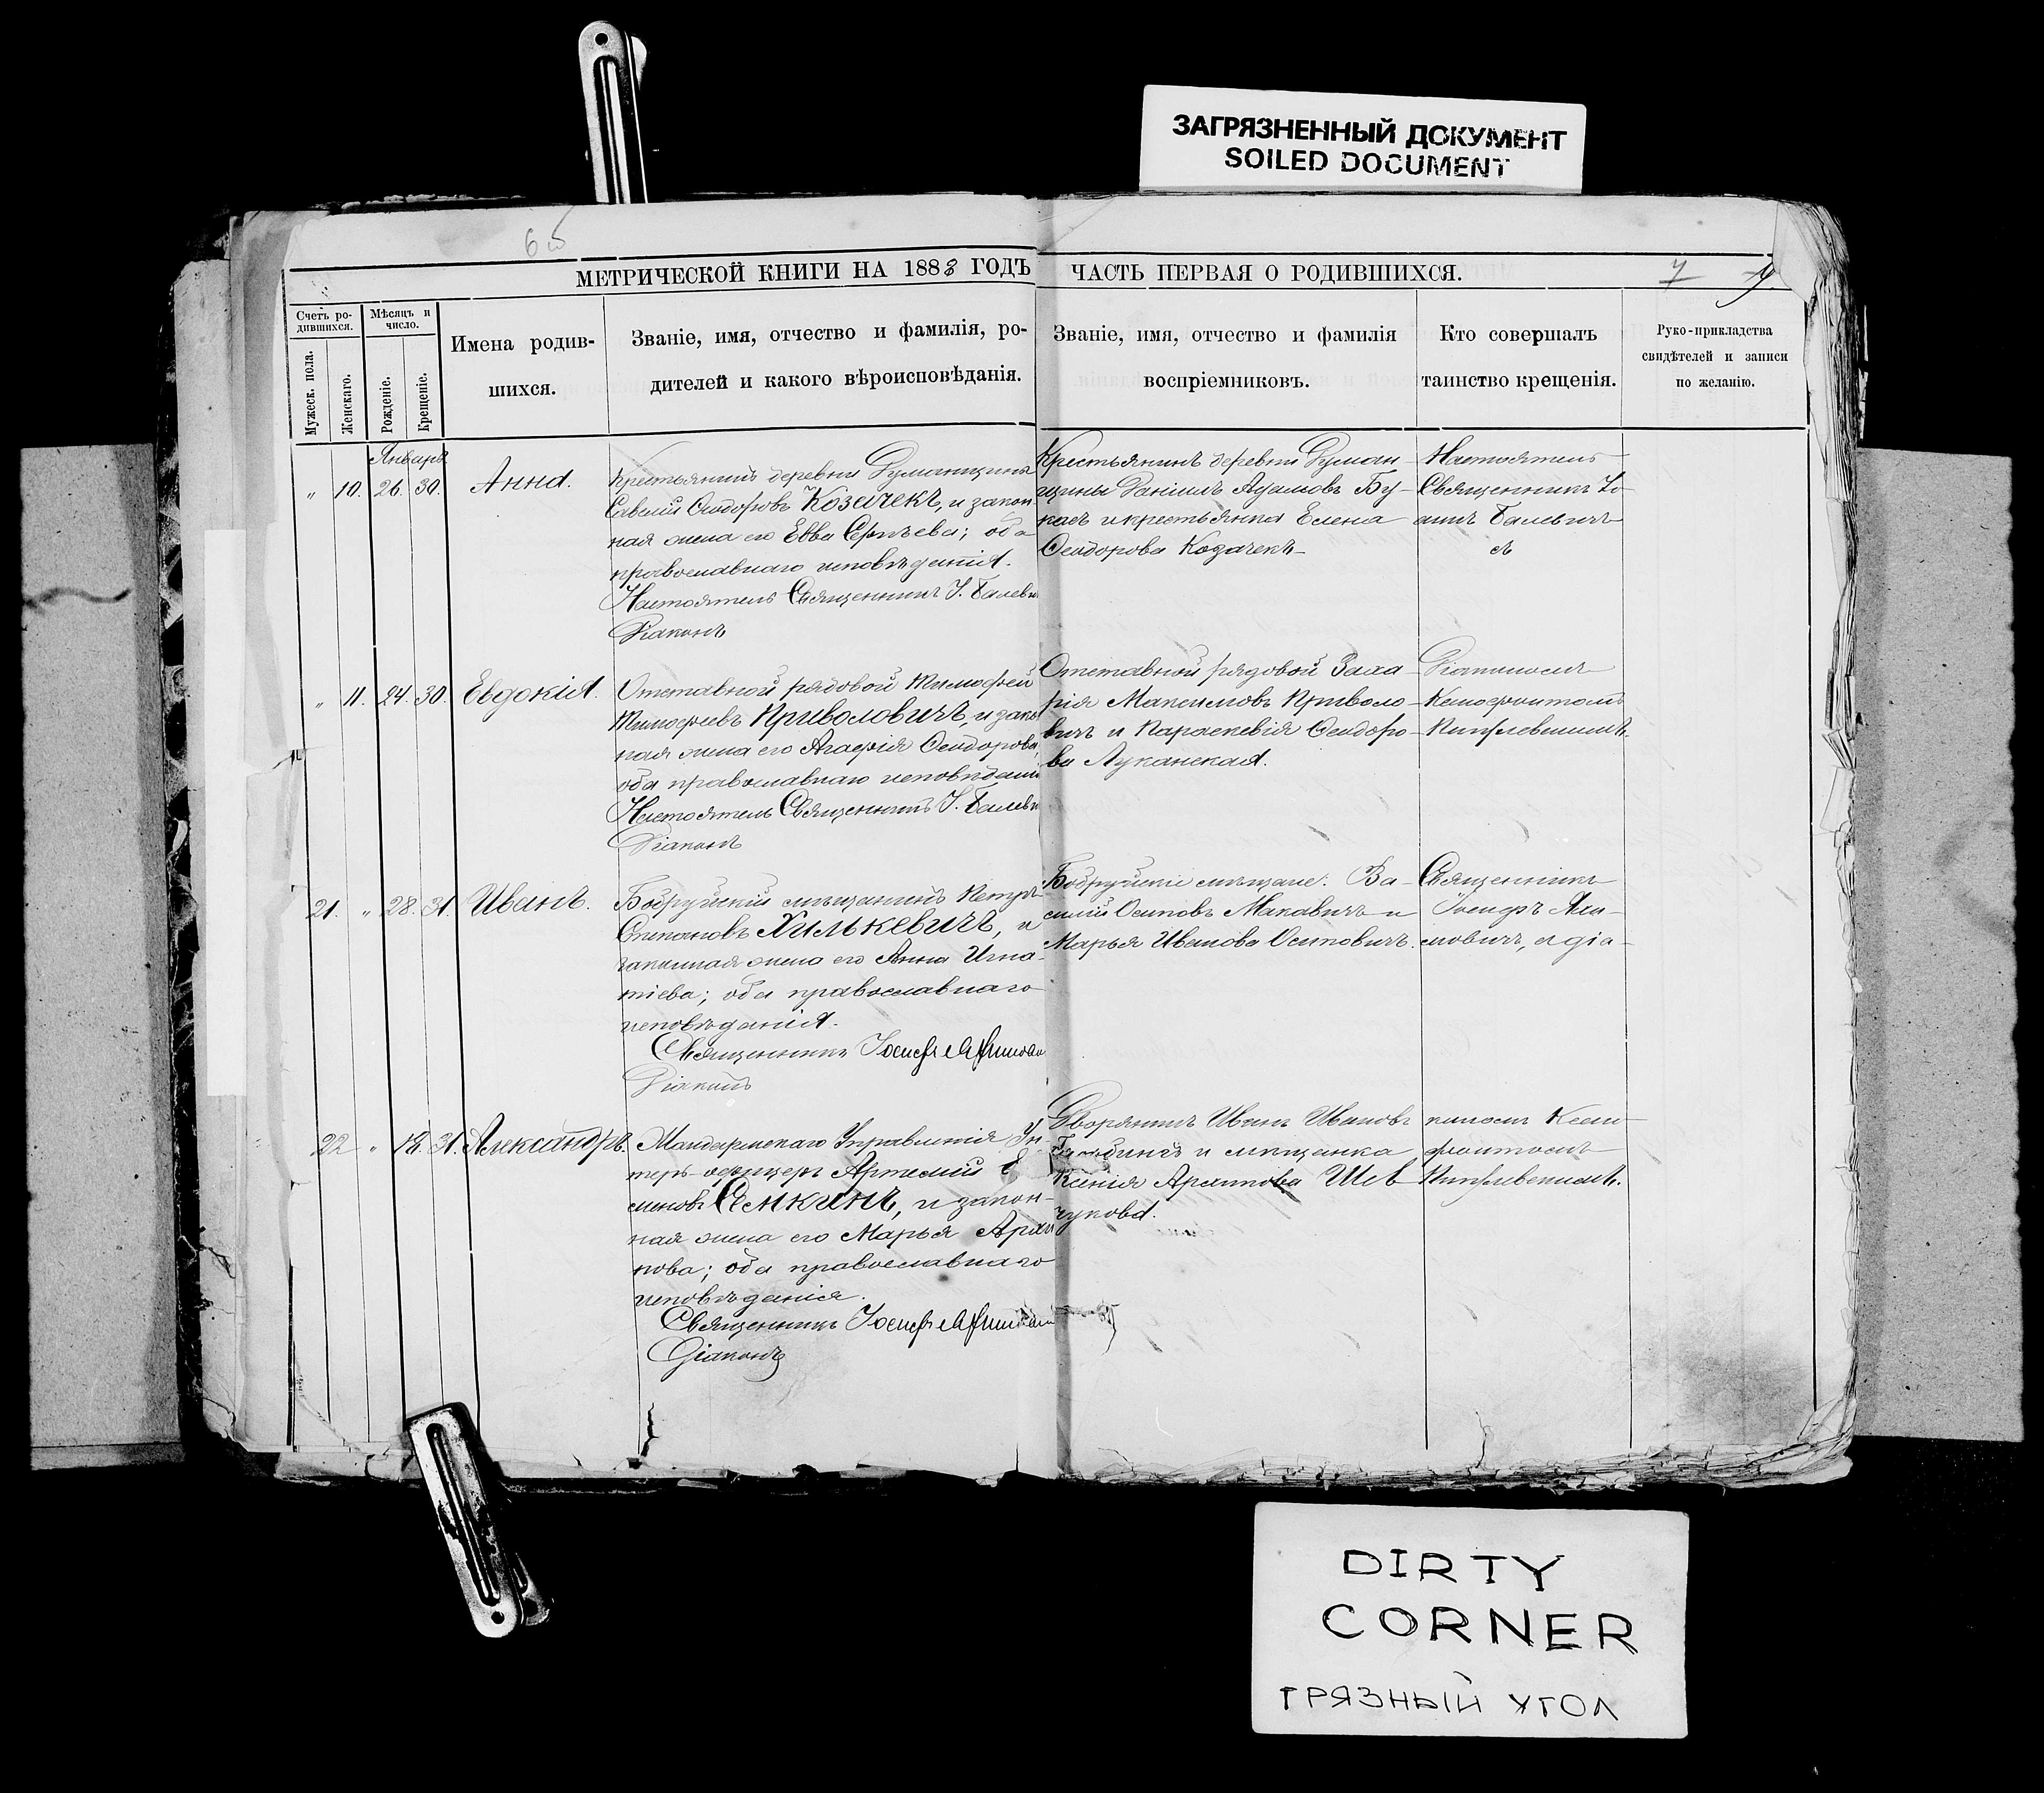 ЗАГРЯЗНЕННЫЙ ДОКУМЕНТ
SOILED DOCUMENT
МЕТРИЧЕСКОЙ КНИГИ НА 1883 ГОДЪ
ЧАСТЬ ПЕРВАЯ О РОДИВШИХСЯ.
7
Счетъ ро-
дившихся.
Мужеск. пола.
Женскаго.
Мѣсяцъ и
число.
Рожденіе.
Крещеніе.
Имена родив-
шихся.
Званіе, имя, отчество и фамилія, ро-
дителей и какого вѣроисповѣданія.
Званіе, имя, отчество и фамилія
воспріемниковъ.
Кто совершалъ
таинство крещенія.
Руко-прикладства
свидѣтелей и записи
по желанію.
Января
" 10. 26. 30. Анна.
Крестьянинъ деревни Думанщины
Савелій Ѳеодоровъ Козачекъ, и закон
ная жена его Евва Сергѣева; оба
православнаго исповѣданія.
Настоятель Священникъ І. Балеви
Діаконъ
Крестьянинъ деревни Думан-
щины Даніилъ Адамовъ Бу-
касъ и крестьянка Елена
Ѳеодорова Козачекъ
Настоятель
Священникъ Іо
аннъ Балевичъ
съ
" 11. 24. 30. Евдокія.
Отставной рядовой Тимофей
Тимофеевъ Приволовичъ, и закон
ная жена его Агафія Ѳеодорова,
оба православнаго исповѣданія
Настоятель Священникъ І. Балеви
Діаконъ
Отставной рядовой Заха-
рія Максимовъ Приволо-
вичъ и Параскевія Ѳеодоро-
ва Луканская.
Діакономъ
Ксенофонтомъ
21. " 28. 31. Иванъ.
Бобруйскій мѣщанинъ Петръ
Степановъ Хилькевичъ, и
законная жена его Анна Игна-
тіева; оба православнаго
исповѣданія.
Священникъ Іосифъ
Діаконъ
Бобруйскіе мѣщане: Ва-
силій Осиповъ Макавичъ и
Марья Иванова Осиповичъ.
Священникъ
Іосифъ
мовичъ, съ діа-
22 " 18. 31. Александръ.
Жандармскаго Управленія Ун-
теръ-офицеръ Артемій
меновъ Семкинъ, и закон-
ная жена его Марья Архи
пова; оба православнаго
исповѣданія.
Священникъ Іосифъ
Діаконъ
Дворянинъ Иванъ Ивановъ
и мѣщанка
Ксенія Архипова Шев
чукова.
кономъ Ксено
фонтомъ
DIRTY
CORNER
ГРЯЗНЫЙ УГОЛ